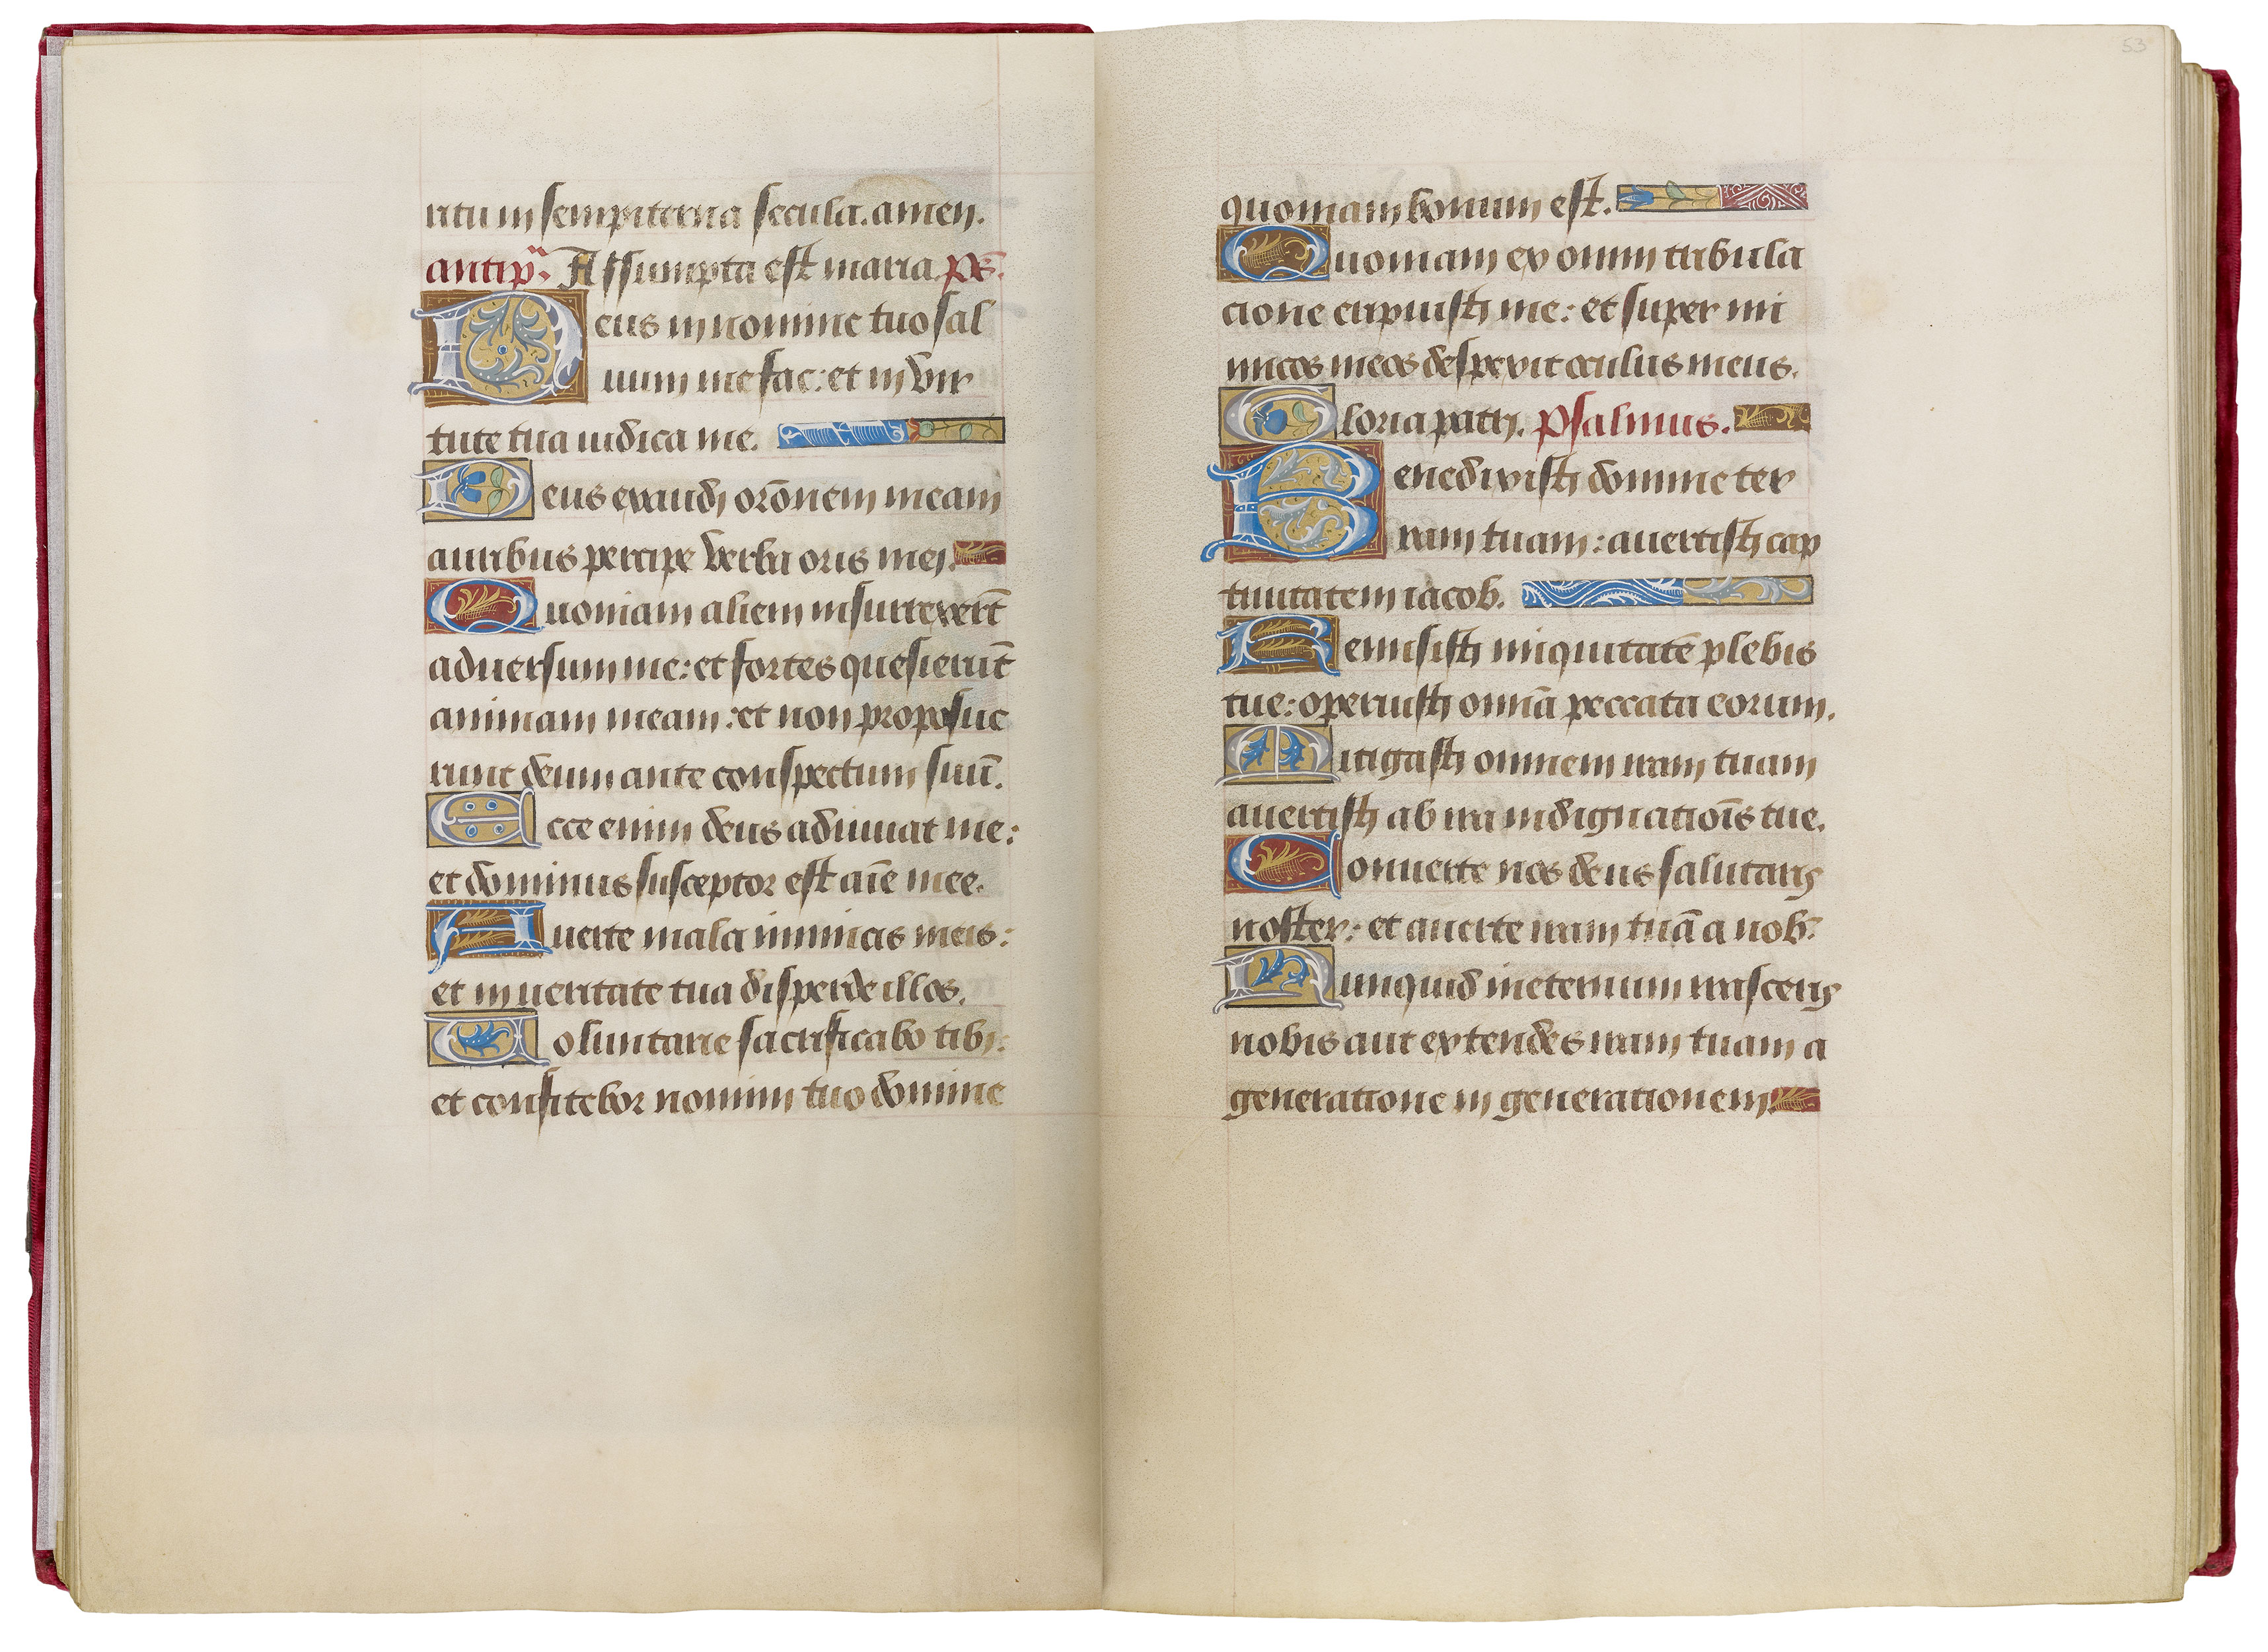 ritu in sempiterna secula. amen.
antiph̃. Assumpta est maria. p̄s.
Deus in nomine tuo sal
uum me fac: et in vir
tute tua iudica me.
Deus exaudi orōnem meam
auribus percipe verba oris mei.
Quoniam alieni insurrexerūt
aduersum me: et fortes quesierūt
animam meam: et non proposue
runt deum ante conspectum suū.
Ecce enim deus adiuuat me:
et dominus susceptor est aīe mee.
Auerte mala inimicis meis:
et in ueritate tua disperde illos.
Voluntarie sacrificabo tibi:
et confitebor nomini tuo domine
53
quoniam bonum est.
Quoniam ex omni tribula
cione eripuisti me: et super ini
micos meos despexit oculus meus.
Gloria patri. Psalmus.
Benedixisti domine ter
ram tuam: auertisti cap
tiuitatem iacob.
Remisisti iniquitatē plebis
tue: operuisti omīa peccata eorum.
Mitigasti omnem iram tuam
auertisti ab ira indignatiōis tue.
Conuerte nos deus salutaris
noster: et auerte iram tuā a nob̄.
Nunquid ineternum irasceris
nobis aut extendes iram tuam a
generatione in generationem.